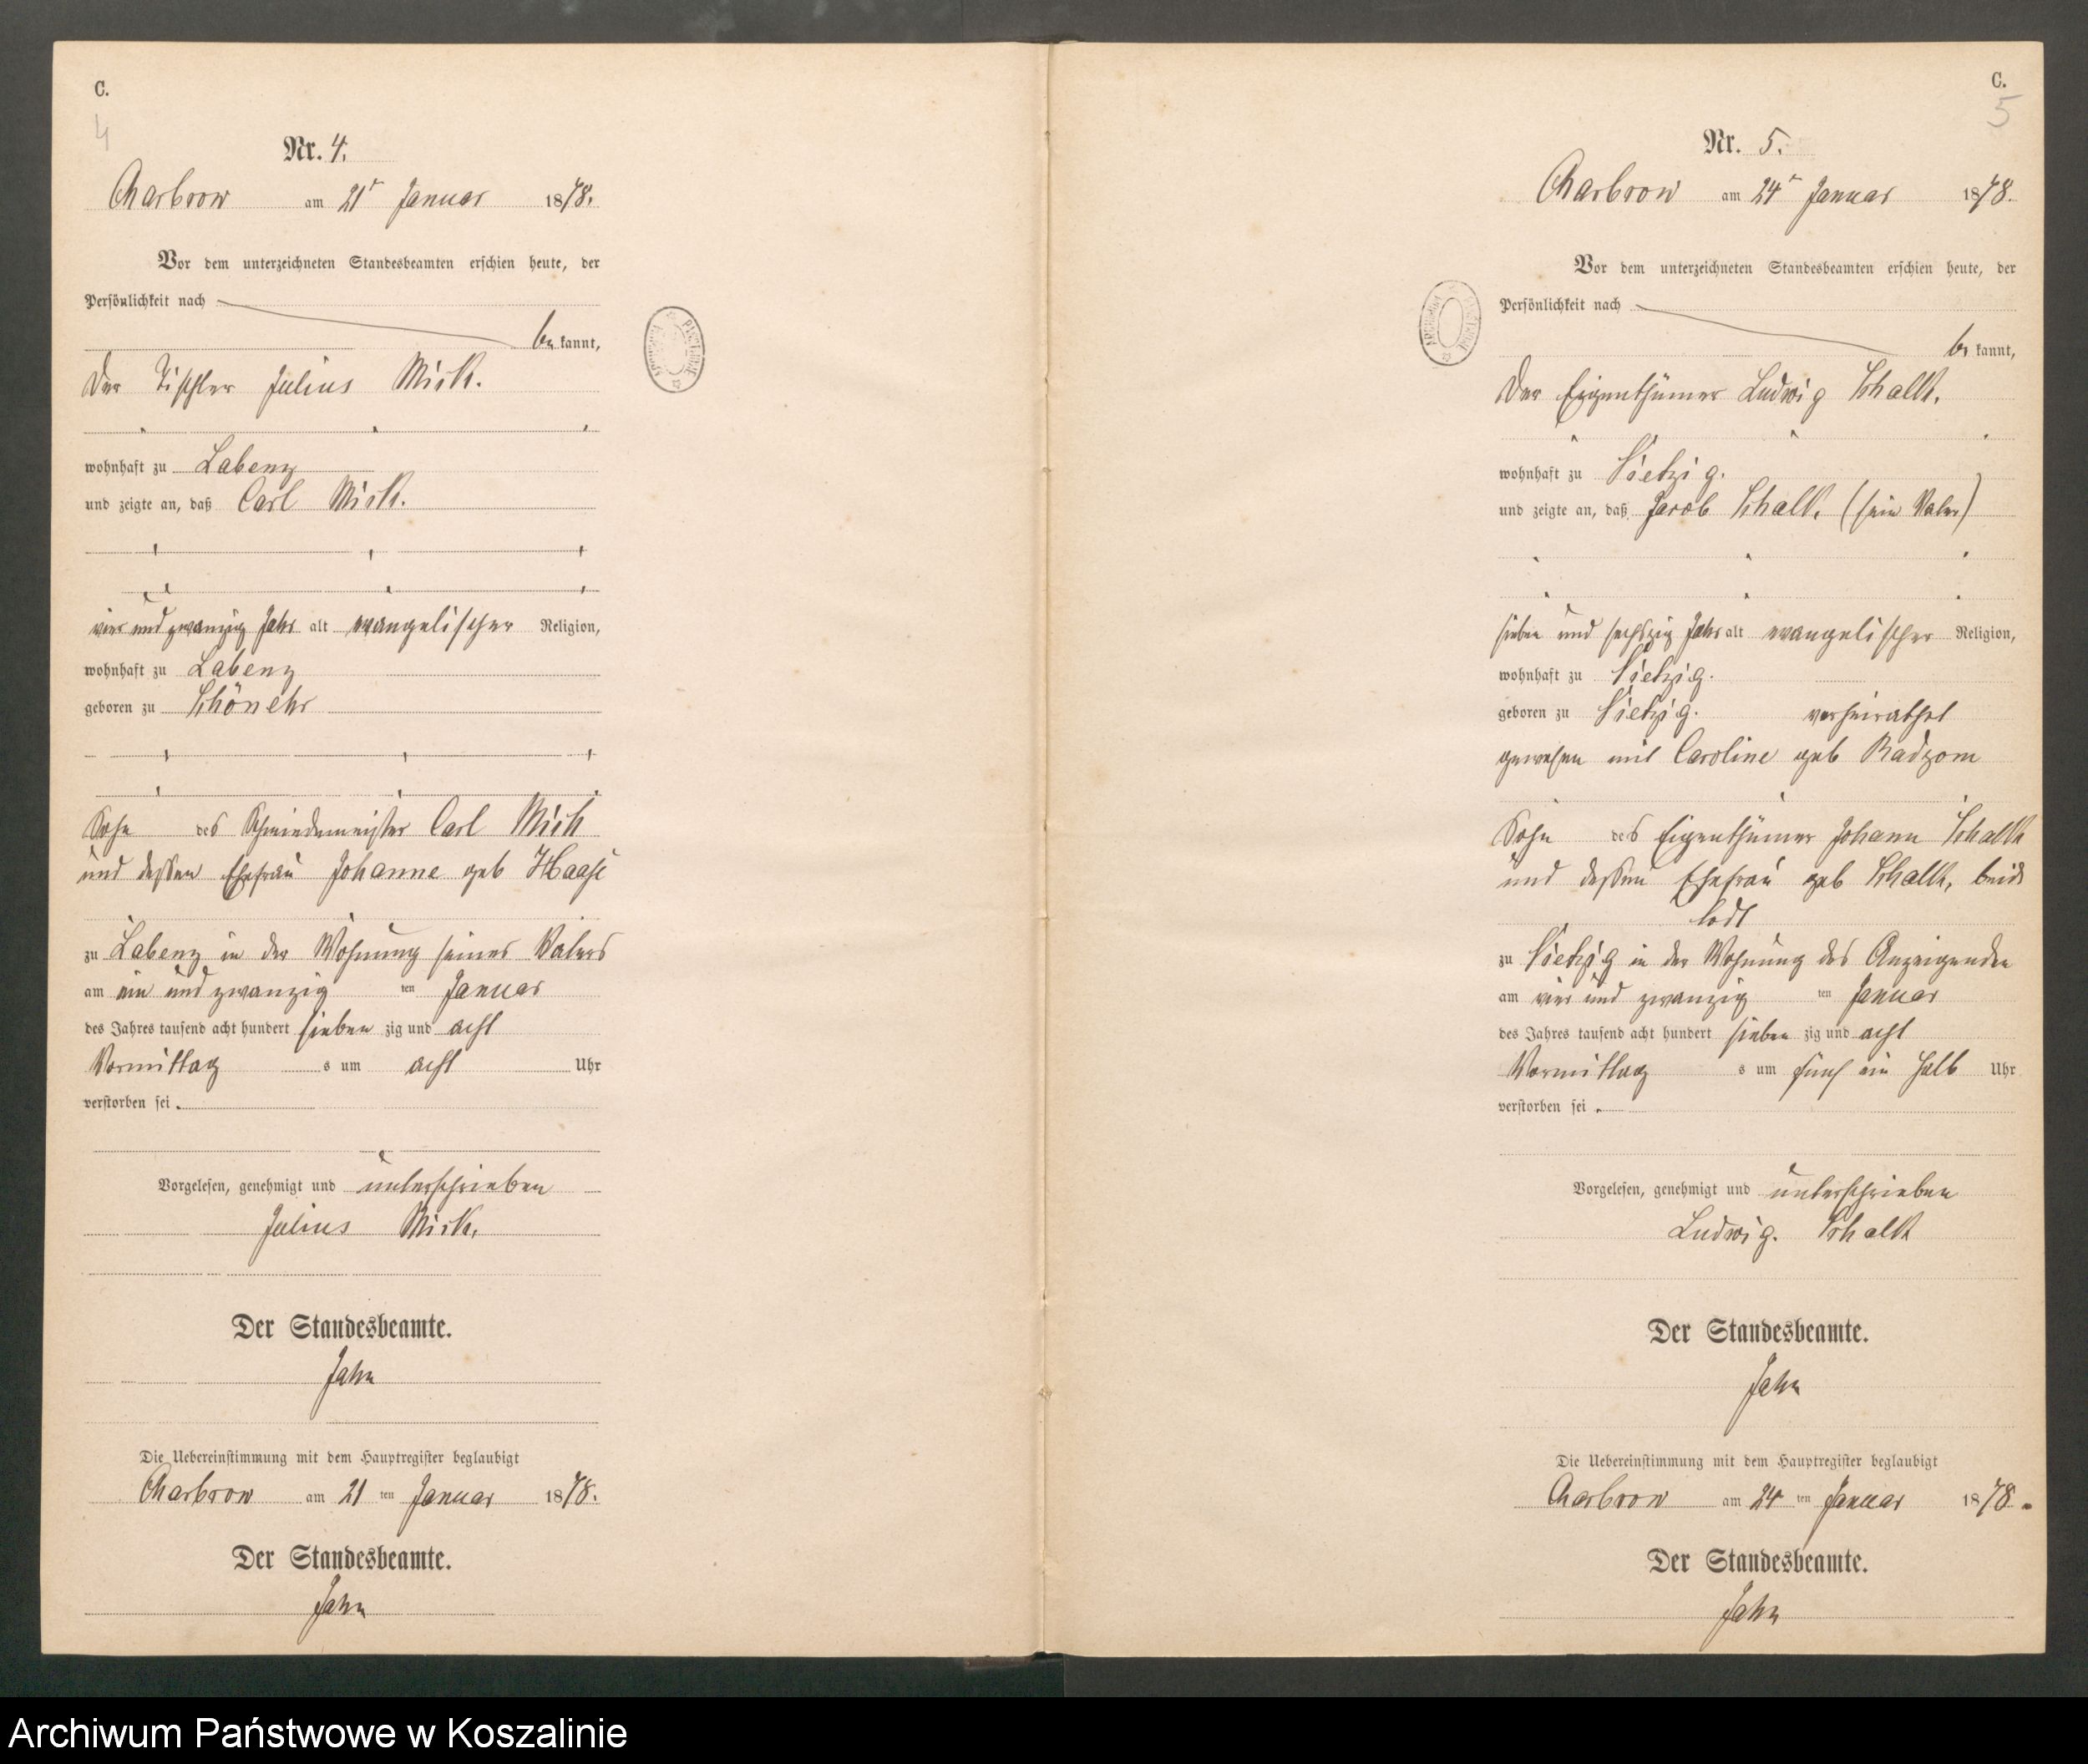 C.
4
Nr. 4.
Charbrow am 21t Januar 1878.
Vor dem unterzeichneten Standesbeamten erschien heute, der
Persönlichkeit nach
be kannt,
Der Tischler Julius Mick.
wohnhaft zu Labenz
und zeigte an, daß Carl Mick.
vier und zwanzig Jahr alt evangelischer Religion,
wohnhaft zu Labenz
geboren zu Schönehr
Sohn des Schmiedemeister Carl Mick
und dessen Ehefrau Johanne geb Haase
zu Labenz in der Wohnung seines Vaters
am ein und zwanzig ten Januar
des Jahres tausend acht hundert sieben zig und acht
Vormittag s um acht Uhr
verstorben sei.
Vorgelesen, genehmigt und unterschrieben
Julius Mick.
Der Standesbeamte.
Jahn
Die Uebereinstimmung mit dem Hauptregister beglaubigt
Charbrow am 21 ten Januar 1878.
Der Standesbeamte.
Jahn
C.
5
Nr. 5.
Charbrow am 24t Januar 1878.
Vor dem unterzeichneten Standesbeamten erschien heute, der
Persönlichkeit nach
be kannt,
Der Eigenthümer Ludwig Schalk.
wohnhaft zu Vietzig.
und zeigte an, daß Jacob Schalk. (sein Vater)
sieben und sechszig Jahr alt evangelischer Religion,
wohnhaft zu Vietzig.
geboren zu Vietzig. verheirathet
gewesen mit Caroline geb Radzom
Sohn des Eigenthümer Johann Schalk
und dessen Ehefrau geb Schalk, beide
todt
zu Vietzig in der Wohnung des Anzeigenden
am vier und zwanzig ten Januar
des Jahres tausend acht hundert sieben zig und acht
Vormittag s um fünf ein halb Uhr
verstorben sei.
Vorgelesen, genehmigt und unterschrieben
Ludwig. Schalk
Der Standesbeamte.
Jahn
Die Uebereinstimmung mit dem Hauptregister beglaubigt
Charbrow am 24 ten Januar 1878.
Der Standesbeamte.
Jahn
Archiwum Państwowe w Koszalinie